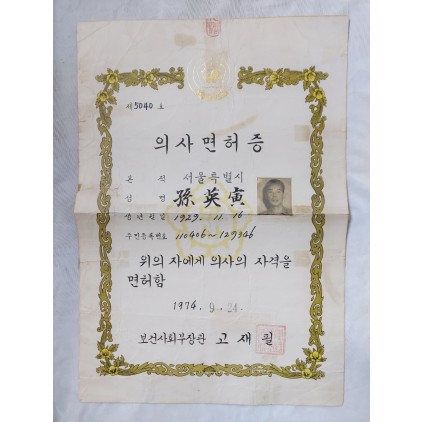 제 5040 호
의사면허증
본 적 서울특별시
성 명 孫英寅
생년월일 1929. 11. 16
주민등록번호 110406~129346
위의 자에게 의사의 자격을
면허함
1974. 9. 24.
보건사회부장관 고재필